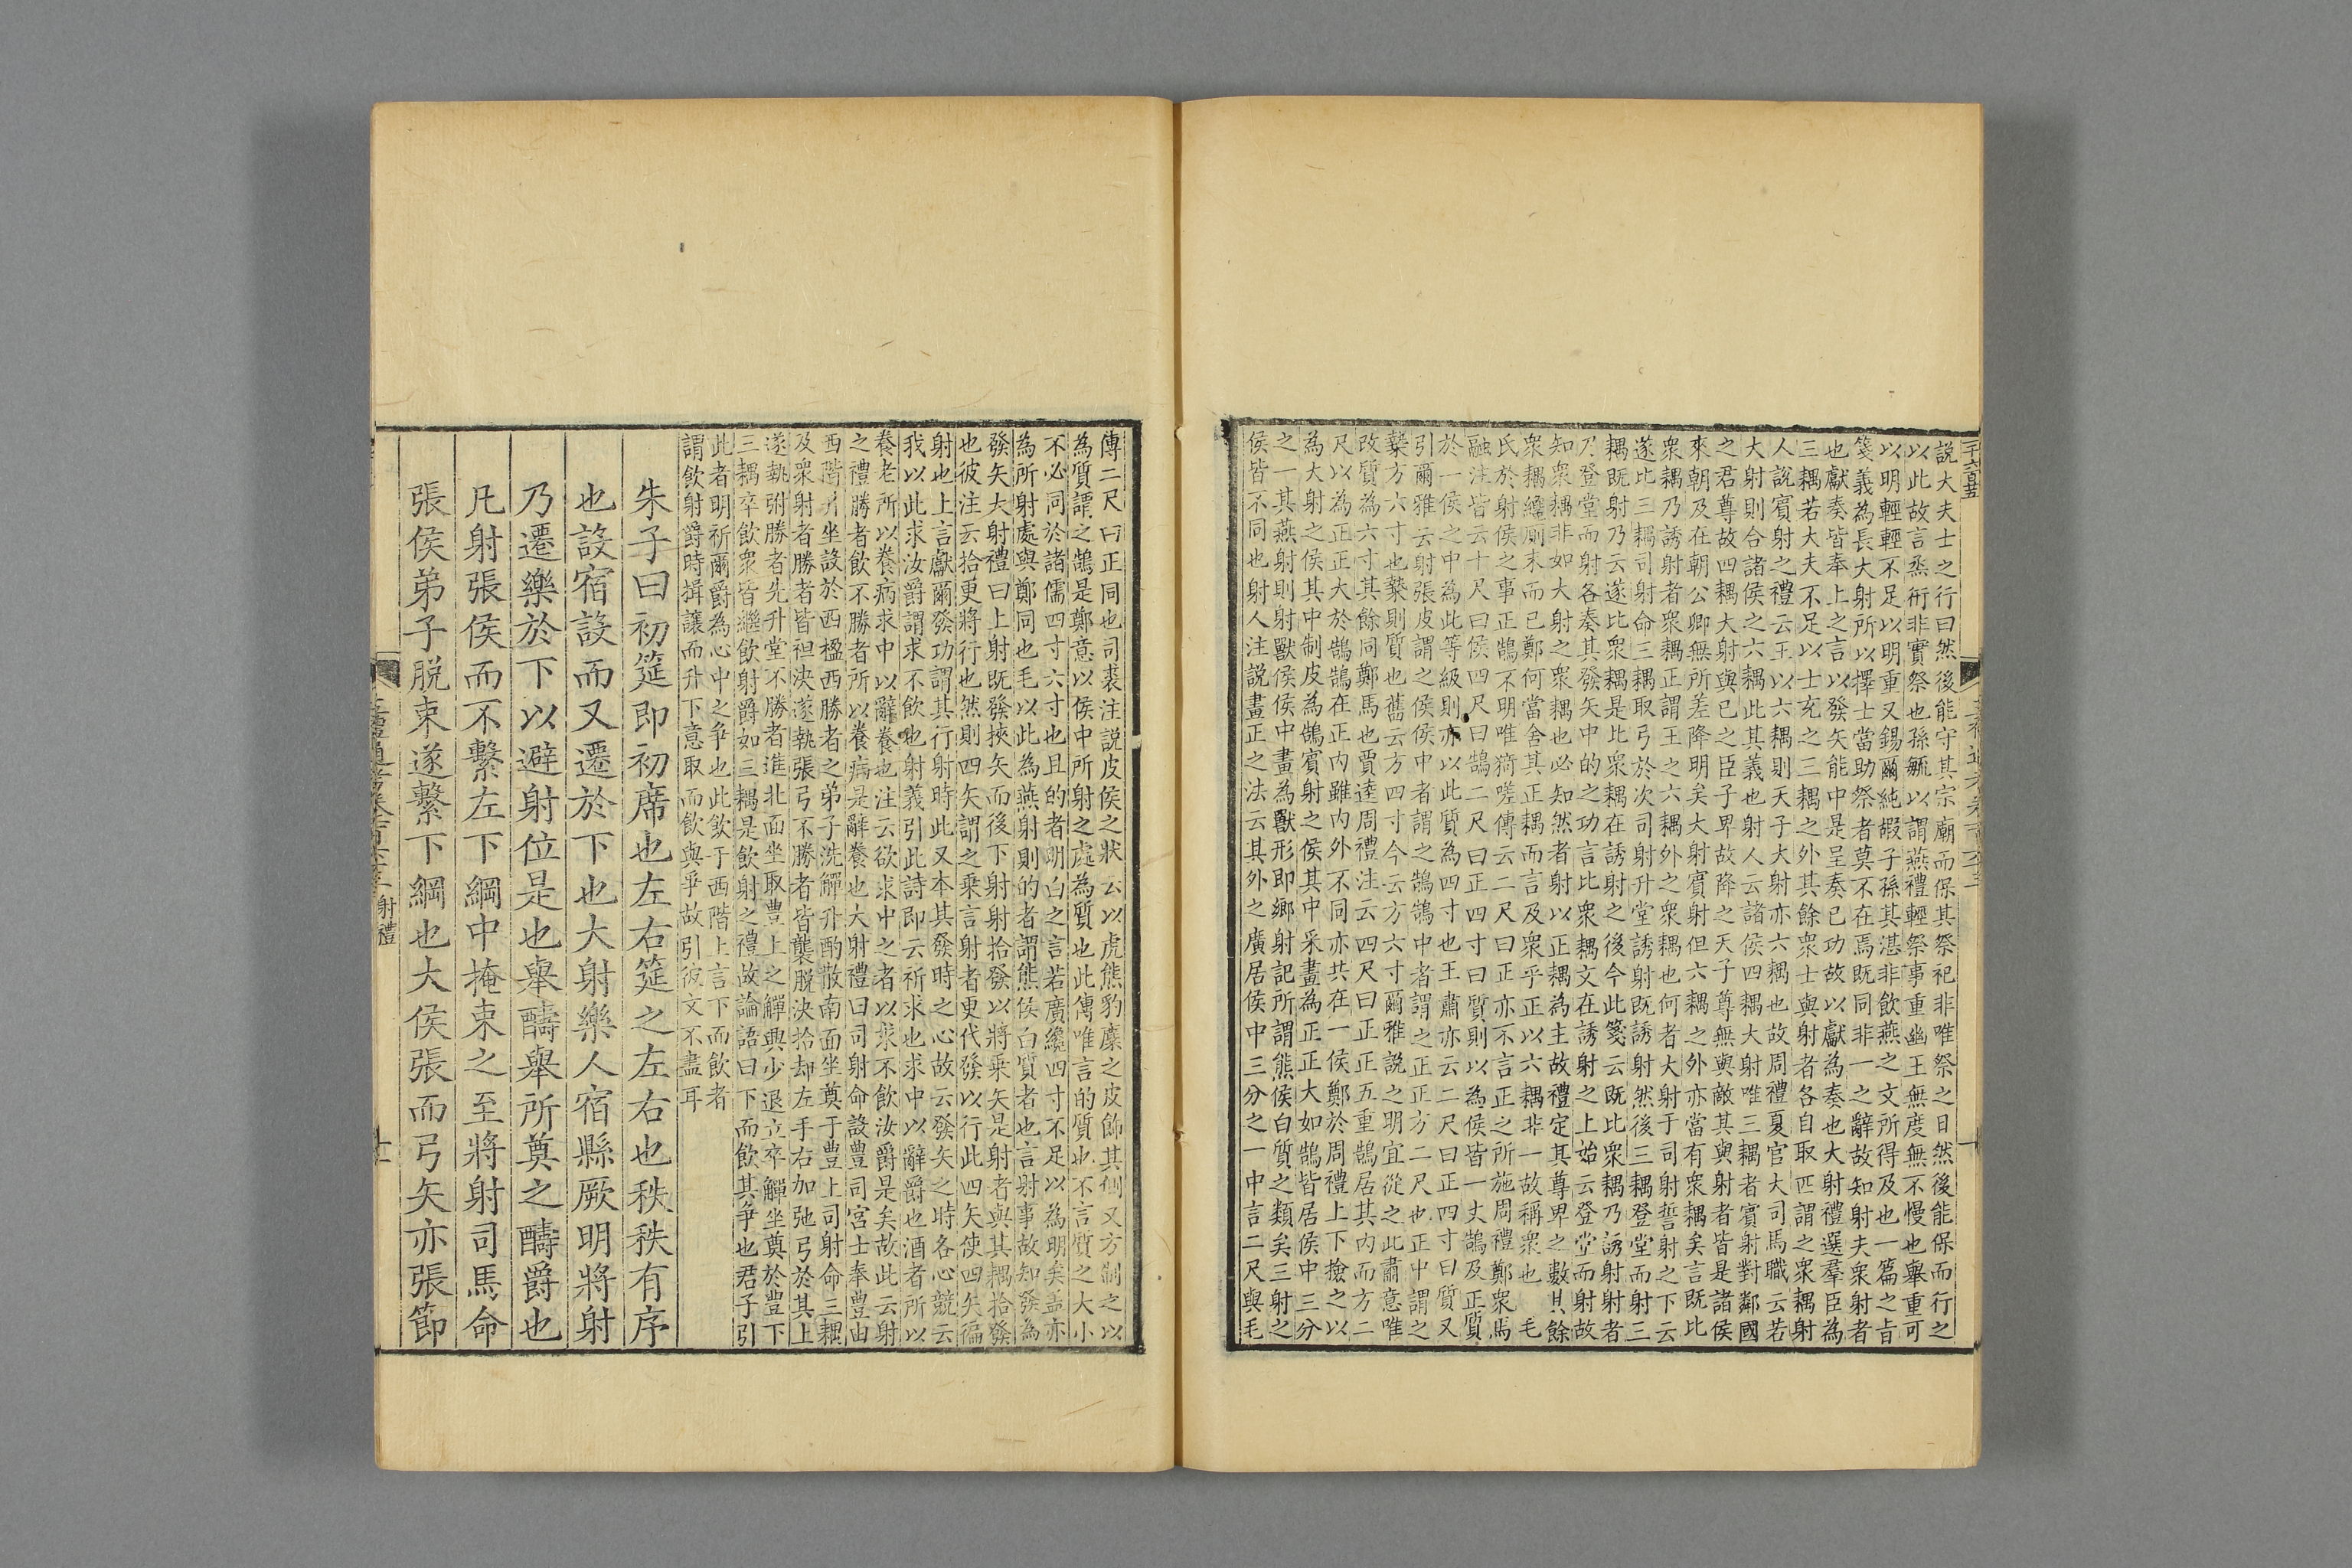 說大夫士之行曰然後能守其宗廟而保其祭祀非唯祭之日然後能保而行之
以此故言烝衎非實祭也孫毓以謂燕禮輕祭事重幽王無度無不慢也舉重可
以明輕輕不足以明重又錫爾純嘏子孫其湛非飲燕之文所得及也一篇之旨
箋義為長大射所以擇士當助祭者莫不在焉既同非一之辭故知射夫衆射者
也獻奏皆奉上之言以發矢能中是呈奏已功故以獻為奏也大射禮選羣臣為
三耦若大夫不足以士充之三耦之外其餘衆士與射者各自取匹謂之衆耦射
人說賓射之禮云王以六耦則天子大射亦六耦也故周禮夏官大司馬職云若
大射則合諸侯之六耦此其義也射人云諸侯四耦大射唯三耦者賓射對鄰國
之君尊故四耦大射與已之臣子卑故降之天子尊無與敵其與射者皆是諸侯
來朝及在朝公卿無所差降明矣大射賓射但六耦之外亦當有衆耦矣言既比
衆耦乃誘射者衆耦正謂王之六耦外之衆耦也何者大射于司射誓射之下云
遂比三耦司射命三耦取弓於次司射升堂誘射既誘射然後三耦登堂而射三
耦既射乃云遂比衆耦是比衆耦在誘射之後今此箋云既比衆耦乃誘射射者
乃登堂而射各奏其發矢中的之功言比衆耦文在誘射之上始云登堂而射故
知衆耦非如大射之衆耦也必知然者射以正耦為主故禮定其尊卑之數其餘
衆耦纔厠末而已鄭何當舍其正耦而言及衆乎正以六耦非一故稱衆也　毛
氏於射侯之事正鵠不明唯猗嗟傳云二尺曰正亦不言正之所施周禮鄭衆馬
融注皆云十尺曰侯四尺曰鵠二尺曰正四寸曰質則以為侯皆一丈鵠及正質
於一侯之中為此等級則亦以此質為四寸也王肅亦云二尺曰正四寸曰質又
引爾雅云射張皮謂之侯侯中者謂之鵠鵠中者謂之正正方二尺也正中謂之
槷方六寸也槷則質也舊云方四寸今云方六寸爾雅說之明宜從之此肅意唯
改質為六寸其餘同鄭馬也賈逵周禮注云四尺曰正正五重鵠居其內而方二
尺以為正正大於鵠鵠在正內雖內外不同亦共在一侯鄭於周禮上下撿之以
為大射之侯其中制皮為鵠賓射之侯其中采畫為正正大如鵠皆居侯中三分
之一其燕射則射獸侯侯中畫為獸形即鄉射記所謂熊侯白質之類矣三射之
侯皆不同也射人注說畫正之法云其外之廣居侯中三分之一中言二尺與毛
傳二尺曰正同也司裘注說皮侯之狀云以虎熊豹麋之皮飾其側又方制之以
為質謂之鵠是鄭意以侯中所射之處為質也此傳唯言的質也不言質之大小
不必同於諸儒四寸六寸也且的者明白之言若廣纔四寸不足以為明矣蓋亦
為所射處與鄭同也毛以此為燕射則的者謂熊侯白質者也言射事故知發為
發矢大射禮曰上射既發挾矢而後下射射拾發以將乘矢是射者與其耦拾發
也彼注云拾更將行也然則四矢謂之乘言射者更代發以行此四矢使四矢徧
射也上言獻爾發功謂其行射時此又本其發時之心故云發矢之時各心競云
我以此求汝爵謂求不飲也射義引此詩即云祈求也求中以辭爵也酒者所以
養老所以養病求中以辭養也注云欲求中之者以求不飲汝爵是矣故此云射
之禮勝者飲不勝者所以養病是辭養也大射禮曰司射命設豐司宮士奉豐由
西階升坐設於西楹西勝者之弟子洗觶升酌散南面坐奠于豐上司射命三耦
及衆射者勝者皆袒決遂執張弓不勝者皆襲脱決拾却左手右加弛弓於其上
遂執弣勝者先升堂不勝者進北面坐取豐上之觶興少退立卒觶坐奠於豐下
三耦卒飲衆皆繼飲射爵如三耦是飲射之禮故論語曰下而飲其爭也君子引
此者明祈爾爵為心中之爭也此飲于西階上言下而飲者
謂飲射爵時揖讓而升下意取而飲與爭故引彼文不盡耳
朱子曰初筵即初席也左右筵之左右也秩秩有序
也設宿設而又遷於下也大射樂人宿縣厥明將射
乃遷樂於下以避射位是也舉醻舉所奠之醻爵也
凡射張侯而不繫左下綱中掩束之至將射司馬命
張侯弟子脱束遂繫下綱也大侯張而弓矢亦張節
射禮